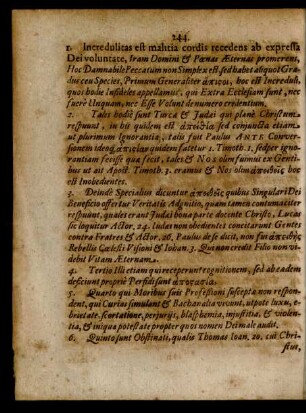 244.
1. Incredulitas est malitia cordis recedens ab expressa
Dei voluntate, Iram Domini & Pœnas Æternas promerens,
Hoc Damnabile Peccatum non Simplex est, sed habet aliquot Gra-
dus ceu Species, Primum Generaliter ἄπιςοι, hoc est Increduli,
quos hodie Infideles appellamus, qui Extra Ecclesiam sunt, nec
fuere Unquam, nec Esse Volunt de numero credentium.
2. Tales hodiè sunt Turcæ & Judæi qui planè Christum
respuunt, in his quidem est ἀπιςία sed conjuncta etiam
ut plurimum Ignorantia; talis fuit Paulus ANTE Conver-
sionem ideoq; ἀπιςίαν quidem fatetur 1. Timoth. 1. sed per igno-
rantiam fecisse quæ fecit, tales & NOS olim fuimus ex Genti-
bus ut ait Apost. Timoth. 3. eramus & Nos olim ἀπειθεῖς hoc
est Inobedientes.
3. Deinde Specialius dicuntur ἀπειθεῖς quibus Singulari Dei
Beneficio offertur Veritatis Agnitio, quam tamen contumaciter
respuunt, quales erant Judæi bona parte docente Christo, Lucas
sic loquitur Actor. 24. Iudæi non obedientes concitarunt Gentes
contra Fratres & Actor. 26. Paulus de se dicit, non fui ἀπειθὴς
Rebellis Cœlesti Visioni & Iohan. 3. Qui non credit Filio non vi-
debit Vitam Æternam.
4. Tertio Illi etiam qui receperunt cognitionem, sed ab eadem
deficiunt propriè Perfidi sunt
5. Quarto qui Moribus suis Professioni susceptæ non respon-
dent, qui Curias simulant & Bachanalia vivunt, utpote luxu, e-
brietate, scortatione, perjurijs, blasphemia, injustitia, & violen-
tia, & iniqua potestate propter quos nomen Dei malè audit.
6. Quinto sunt Obstinati, qualis Thomas Ioan. 20. cui Chri-
stus,